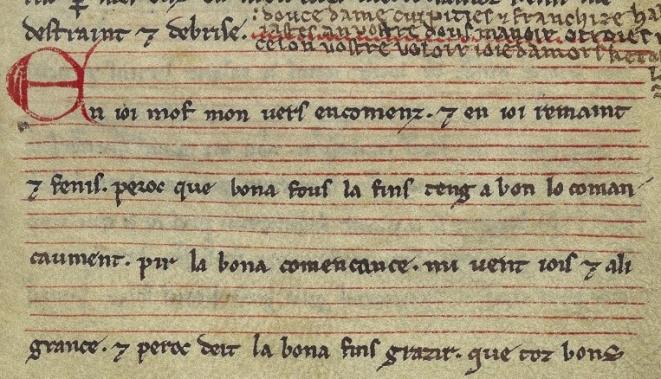 destraint ⁊ debrise.
douce dame cui pities ⁊ franchize ha
faites an vostre dous manoir.
celon vostre voloir ioie damors
En ioi mof mon vers encomenz. ⁊ en ioi remaint
⁊ fenis. peroc que bona fous la fins teng a bon lo coman
caument. pir la bona comencance. mi uent iois ⁊ ali
grance. ⁊ peroc deit la bona fins grazir. que toz bons